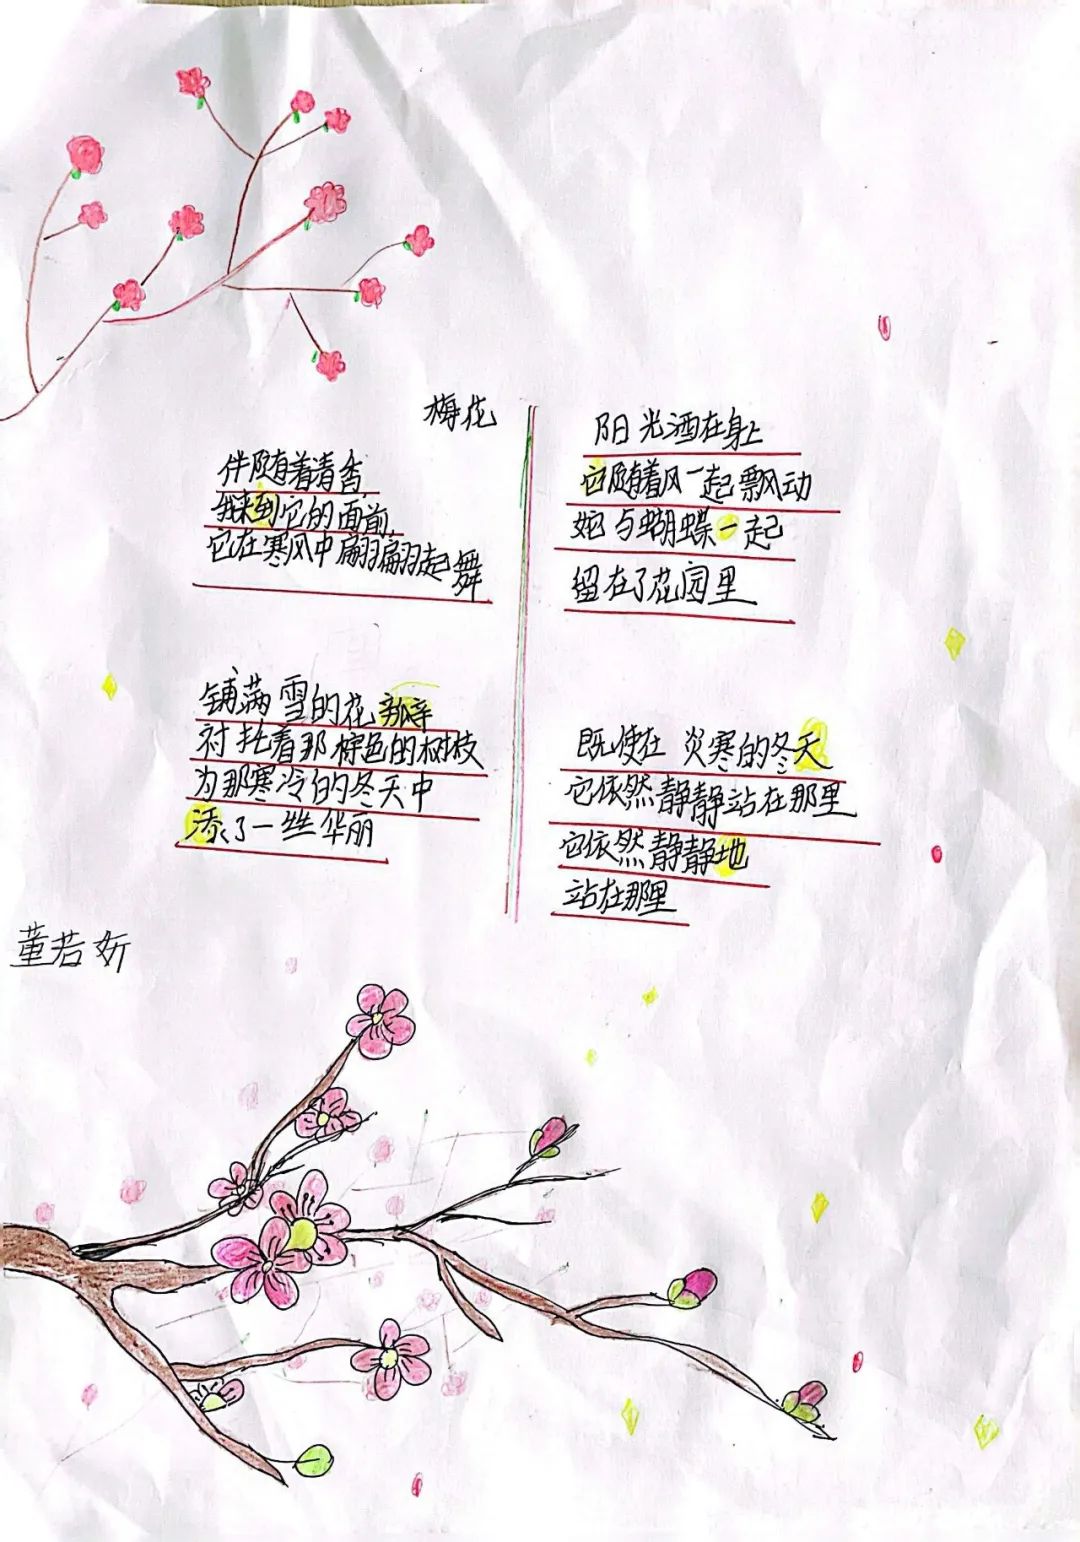 梅花
伴随着清香
我来到它的面前
它在寒风中翩翩起舞
铺满雪的花瓣
衬托着那棕色的树枝
为那寒冷的冬天中
添了一丝华丽
阳光洒在身上
它随着风一起飘动
她与蝴蝶一起
留在了花园里
既使在 炎寒的冬天
它依然静静站在那里
它依然静静地
站在那里
董若妡